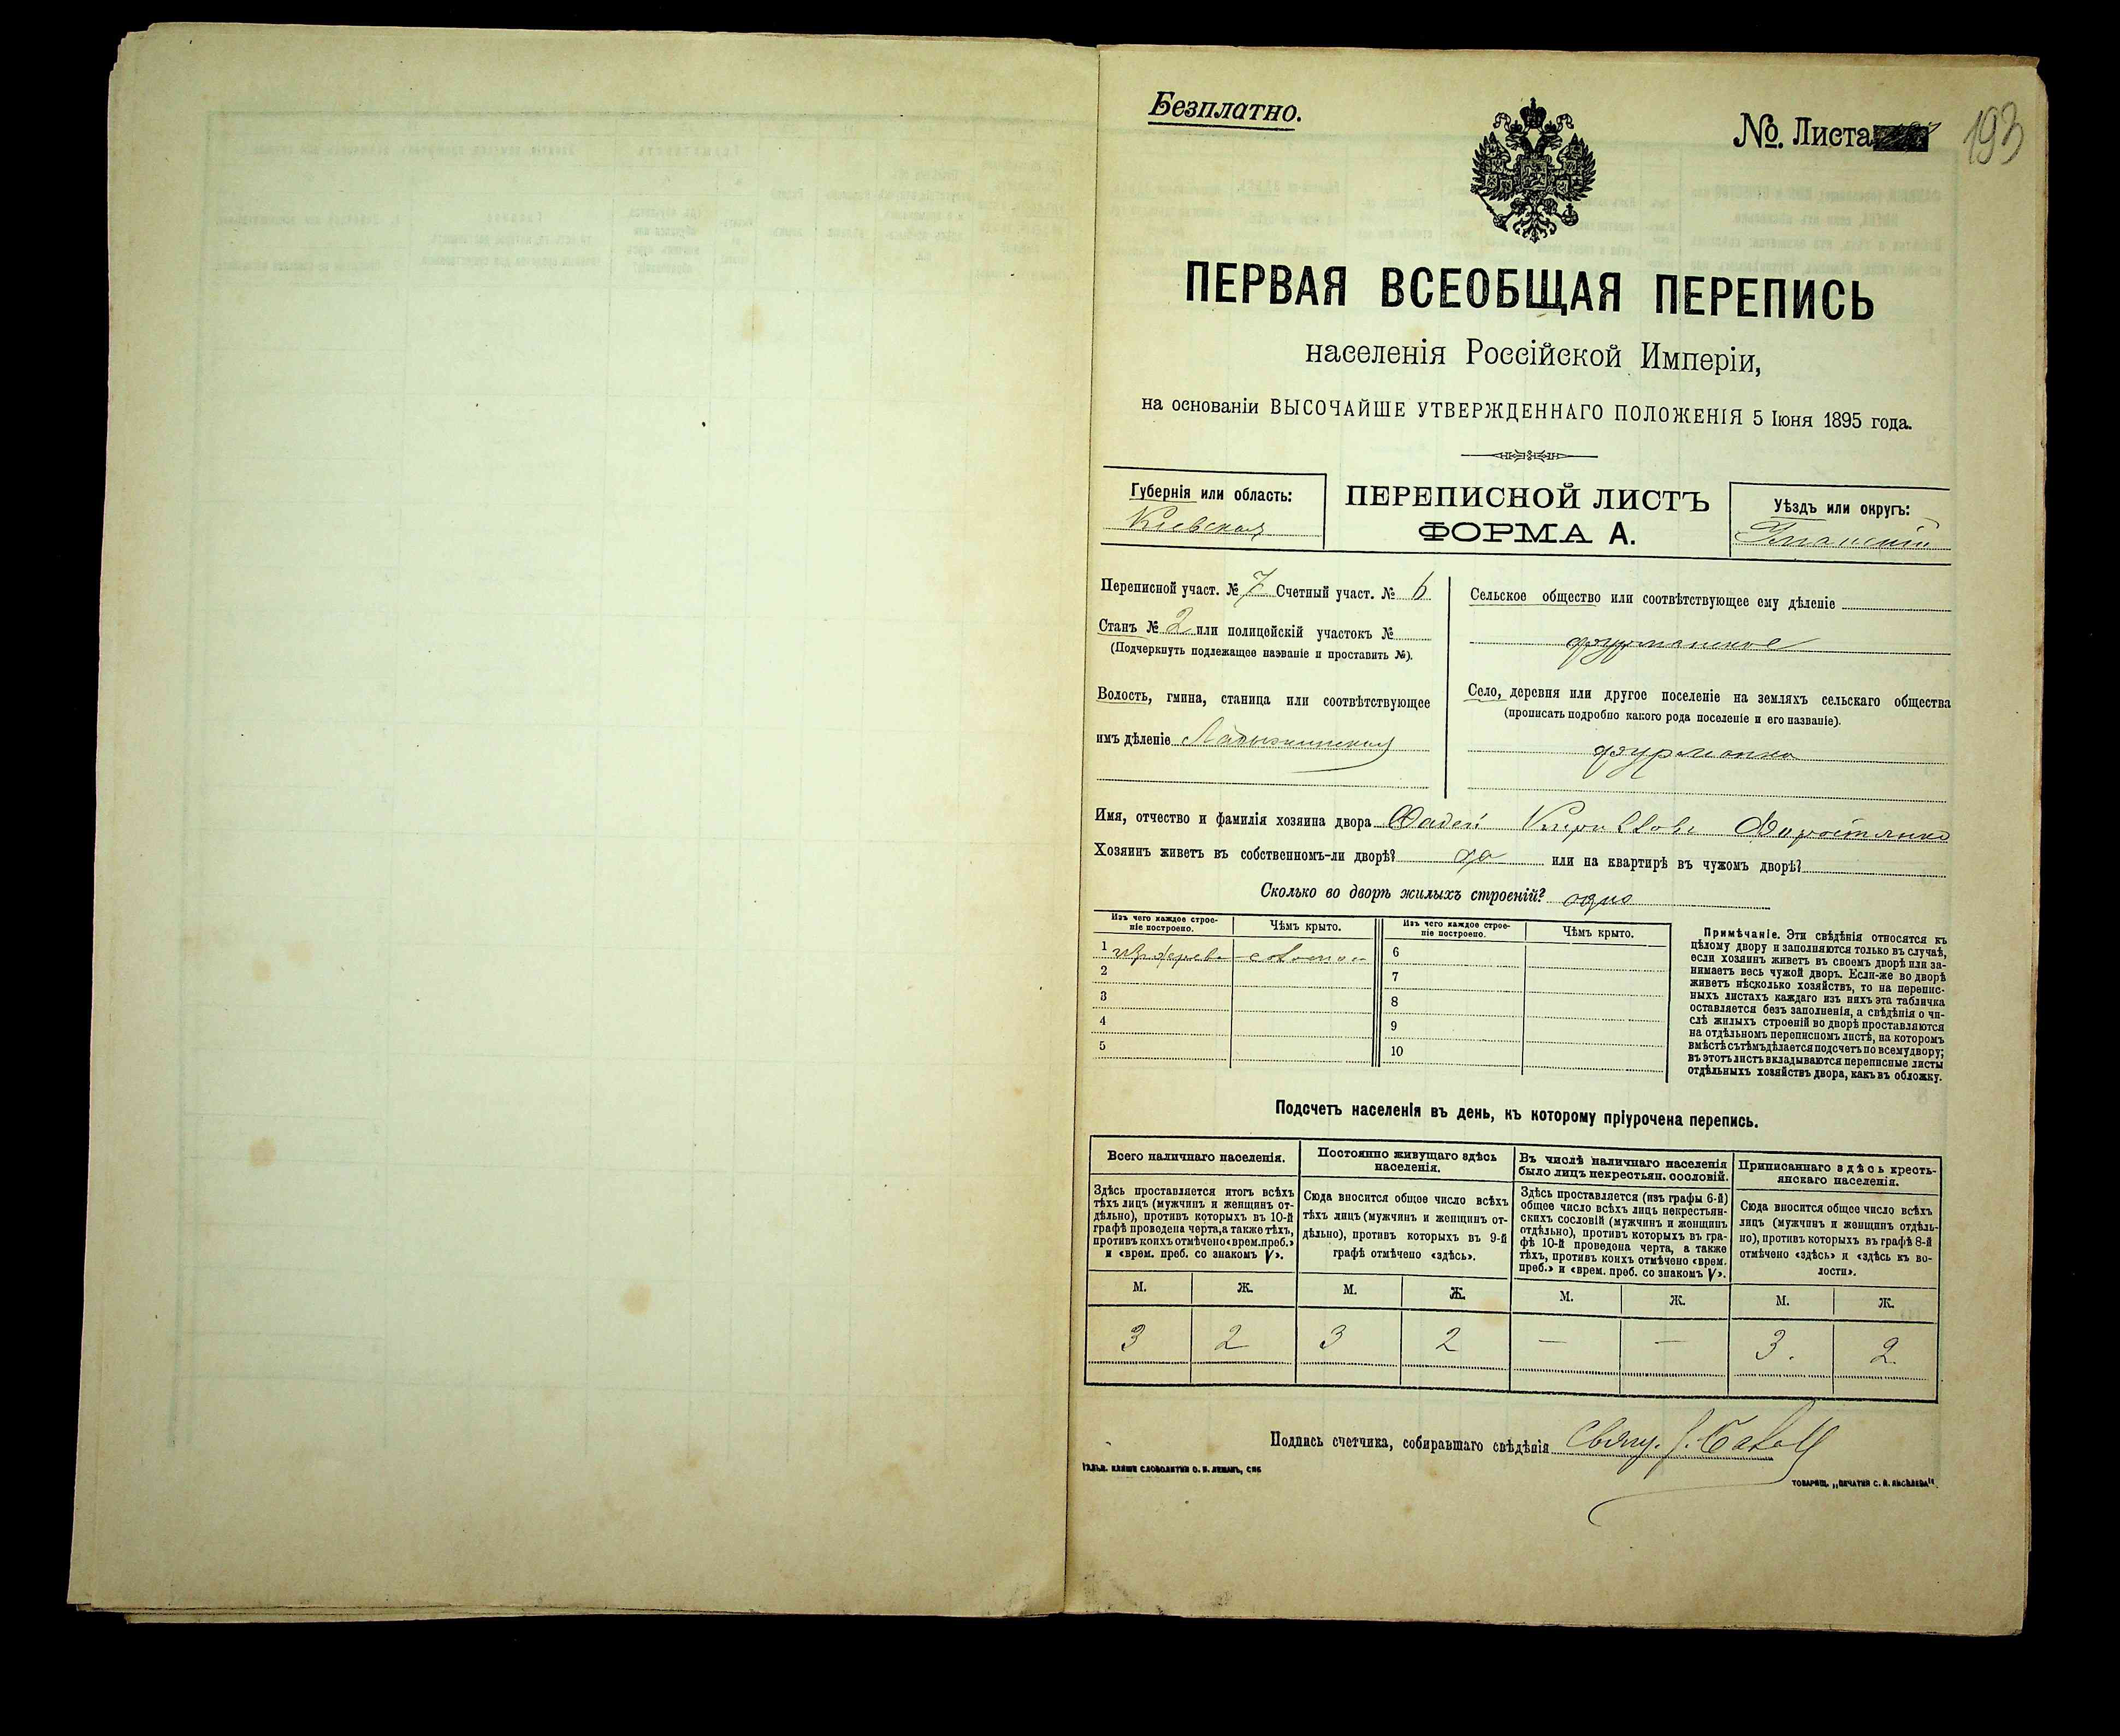 Безплатно.
№ Листа
193
ПЕРВАЯ ВСЕОБЩАЯ ПЕРЕПИСЬ
населенія Россійской Имперіи,
на основаніи ВЫСОЧАЙШЕ УТВЕРЖДЕННАГО ПОЛОЖЕНІЯ 5 Іюня 1895 года.
Губернія или область:
Кіевская
ПЕРЕПИСНОЙ ЛИСТЪ
ФОРМА А.
Уѣздъ или округъ:
Переписной участ. № 7 Счетный участ. № 6
Станъ № 2 или полицейскій участокъ №
(Подчеркнуть подлежащее названіе и проставить №).
Волость, гмина, станица или соотвѣтствующее
имъ дѣленіе Ладыжинская
Сельское общество или соотвѣтствующее ему дѣленіе
фурманское
Село, деревня или другое поселеніе на земляхъ сельскаго общества
(прописать подробно какого рода поселеніе и его названіе).
фурманка
Имя, отчество и фамилія хозяина двора Фадей
Хозяинъ живетъ въ собственномъ-ли дворѣ? да или на квартирѣ въ чужомъ дворѣ?
Сколько во дворѣ жилыхъ строеній? одно
Изъ чего каждое строе-
ніе построено.
Чѣмъ крыто.
Изъ чего каждое строе-
ніе построено.
Чѣмъ крыто.
1 изъ дерева соломой
2
3
4
5
6
7
8
9
10
Примѣчаніе. Эти свѣдѣнія относятся къ
цѣлому двору и заполняются только въ случаѣ,
если хозяинъ живетъ въ своемъ дворѣ или за-
нимаетъ весь чужой дворъ. Если-же во дворѣ
живетъ нѣсколько хозяйствъ, то на перепис-
ныхъ листахъ каждаго изъ нихъ эта табличка
оставляется безъ заполненія, а свѣдѣнія о чи-
слѣ жилыхъ строеній во дворѣ проставляются
на отдѣльномъ переписномъ листѣ, на которомъ
вмѣстѣ съ тѣмъ дѣлается подсчетъ по всему двору;
въ этотъ листъ вкладываются переписные листы
отдѣльныхъ хозяйствъ двора, какъ въ обложку.
Подсчетъ населенія въ день, къ которому пріурочена перепись.
Всего наличнаго населенія.
Здѣсь проставляется итогъ всѣхъ
тѣхъ лицъ (мужчинъ и женщинъ от-
дѣльно), противъ которыхъ въ 10-й
графѣ проведена черта, а также тѣхъ,
противъ коихъ отмѣчено «врем. преб.»
и «врем. преб. со знакомъ V».
Постоянно живущаго здѣсь
населенія.
Сюда вносится общее число всѣхъ
тѣхъ лицъ (мужчинъ и женщинъ от-
дѣльно), противъ которыхъ въ 9-й
графѣ отмѣчено «здѣсь».
Въ числѣ наличнаго населенія
было лицъ некрестьян. сословій.
Здѣсь проставляется (изъ графы 6-й)
общее число всѣхъ лицъ некрестьян-
скихъ сословій (мужчинъ и женщинъ
отдѣльно), противъ которыхъ въ гра-
фѣ 10-й проведена черта, а также
тѣхъ, противъ коихъ отмѣчено «врем.
преб.» и «врем. преб. со знакомъ V».
Приписаннаго здѣсь кресть-
янскаго населенія.
Сюда вносится общее число всѣхъ
лицъ (мужчинъ и женщинъ отдѣль-
но), противъ которыхъ въ графѣ 8-й
отмѣчено «здѣсь» и «здѣсь къ во-
лости».
М. Ж. М. Ж. М. Ж. М. Ж.
3 2 3 2 — — 3. 2
Подпись счетчика, собиравшаго свѣдѣнія
ГАЛЬВ. КЛИШЕ СЛОВОЛИТНИ О. И. ЛЕМАНЪ, СПБ
ТОВАРИЩ. „ПЕЧАТНЯ С. П. ЯКОВЛЕВА".